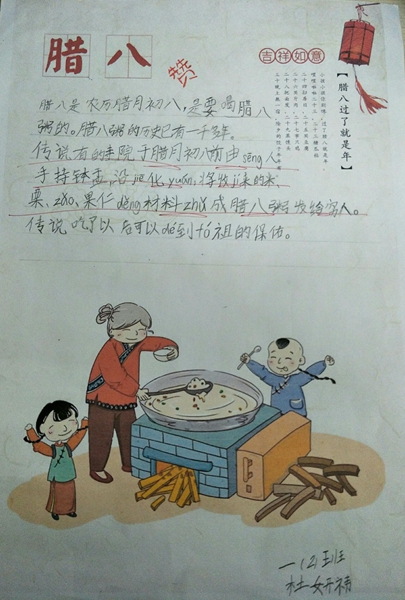 腊八
赞
吉祥如意
【腊八过了就是年】
腊八是农历腊月初八,是要喝腊八
粥的。腊八粥的历史已有一千多年。
传说有的寺院于腊月初八前由sēng人
手持钵盂,沿jiē化yuán,将收jí来的米、
栗、zǎo、果仁děng材料zhǔ成腊八粥发给穷人。
传说吃了以后可以dé到fó祖的保佑。
一(2)班
杜妍